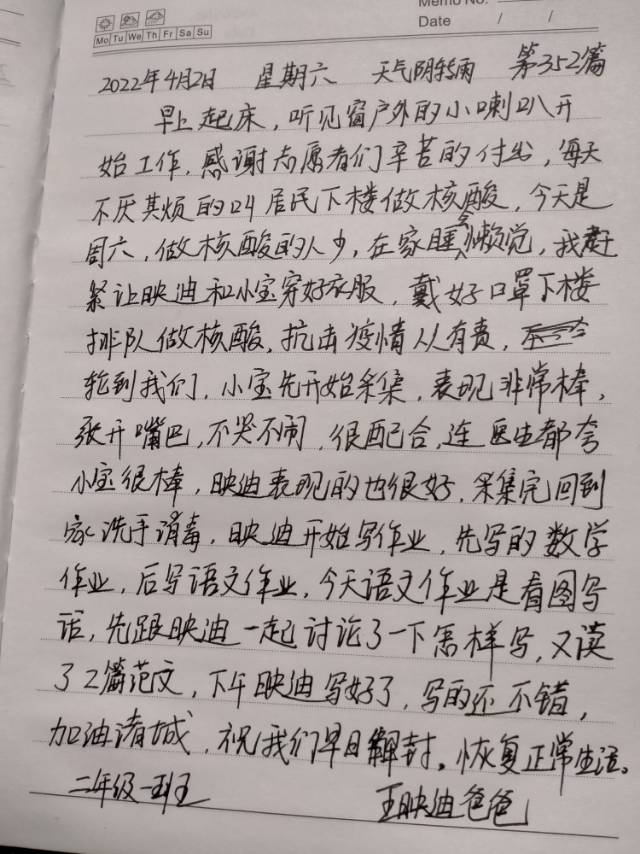 Memo No.
Mo Tu We Th Fr Sa Su
Date / /
2022年4月2日 星期六 天气阴转雨 第352篇
早上起床,听见窗户外的小喇叭开
始工作,感谢志愿者们辛苦的付出,每天
不厌其烦的叫居民下楼做核酸,今天是
周六,做核酸的人少,在家睡懒觉,我赶
紧让映迪和小宝穿好衣服,戴好口罩下楼
排队做核酸,抗击疫情人有责,
轮到我们,小宝先开始采集,表现非常棒,
张开嘴巴,不哭不闹,很配合,连医生都夸
小宝很棒,映迪表现的也很好,采集完回到
家洗手消毒,映迪开始写作业,先写的数学
作业,后写语文作业,今天语文作业是看图写
话,先跟映迪一起讨论了一下怎样写,又读
了2篇范文,下午映迪写好了,写的还不错,
加油诸城,祝我们早日解封。恢复正常生活。
二年级一班 王映迪爸爸